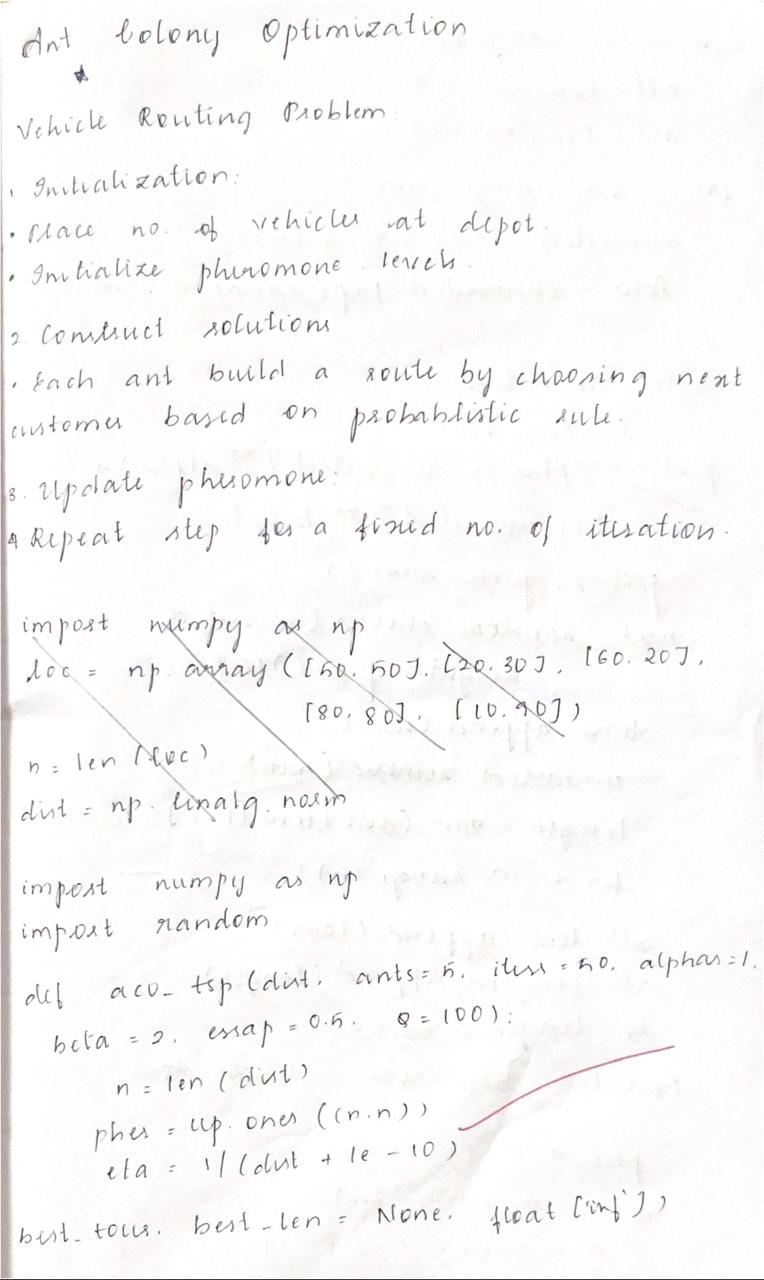 Ant Colony Optimization
Vehicle Routing Problem
1 Initialization:
• Place no. of vehicles at depot.
• Initialize pheromone levels.
2. Construct solutions
• Each ant build a route by choosing next
customer based on probablistic rule.
3. Update pheromone:
4 Repeat step for a fixed no. of iteration.
import numpy as np
loc = np. array ([50, 50], [20, 30], [60. 20],
[80, 80], [10, 90])
n = len (loc)
dist = np. linalg. norm
import numpy as np
import random
def aco_ tsp (dist, ants = 5, iters = 50, alphas = 1,
beta = 2, evap = 0.5, Q = 100):
n = len (dist)
pher = np. ones ((n, n))
eta = 1/(dist + 1e - 10)
best_ tour, best_len = None, float ['inf'])